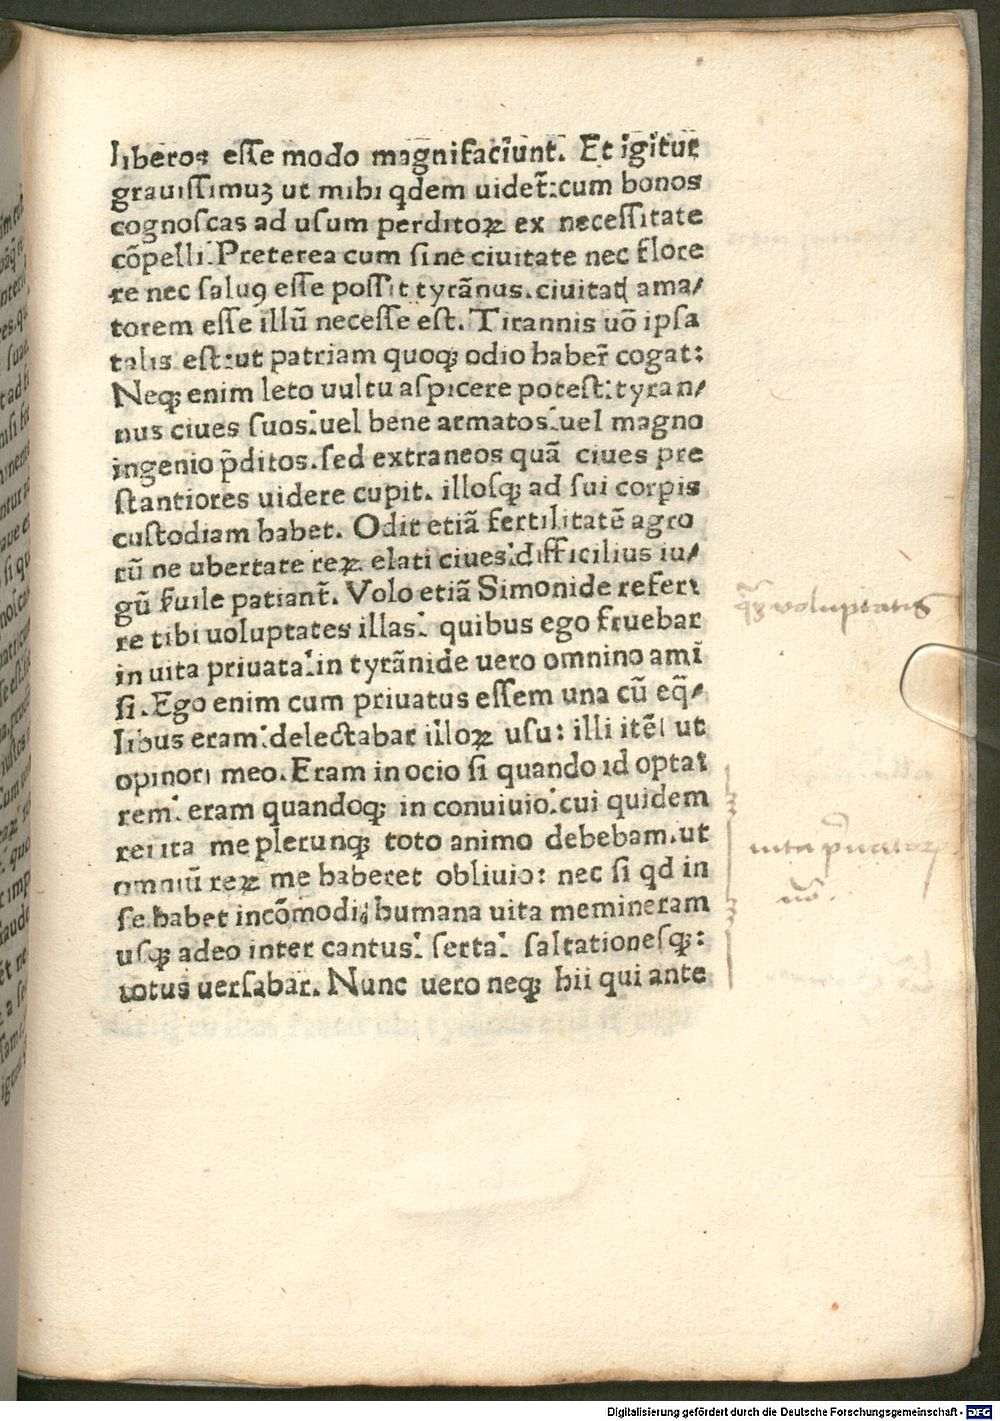 liberos esse modo magnifaciunt. Et igitur
grauissimuꝫ ut mihi qdem uidet̄: cum bonos
cognoscas ad usum perditoꝝ ex necessitate
cōpelli. Preterea cum sine ciuitate nec flore
re nec saluꝰ esse possit tyrānus. ciuitatꝭ ama/
torem esse illū necesse est. Tirannis uō ipsa
talis est: ut patriam quoqꝫ odio haber̄ cogat:
Neqꝫ enim leto uultu aspicere potest: tyran/
nus ciues suos: uel bene armatos: uel magno
ingenio p̄ditos. sed extraneos quā ciues pre
stantiores uidere cupit. illosqꝫ ad sui corpis
custodiam habet. Odit etiā fertilitatē agro
rū ne ubertate reꝝ elati ciues: difficilius iu/
gū s̄uile patiant̄. Volo etiā Simonide refer
re tibi uoluptates illas: quibus ego fruebar
in uita priuata: in tyrānide uero omnino ami
si. Ego enim cum priuatus essem una cū eq̄/
libus eram: delectabar illoꝝ usu: illi itē ut
opinor meo. Eram in ocio si quando id opta
rem: eram quandoqꝫ in conuiuio: cui quidem
rei ita me plerunqꝫ toto animo debebam. ut
omniū reꝝ me haberet obliuio: nec si qd in
se habet incōmodi humana uita memineram
usqꝫ adeo inter cantus: serta: saltationesqꝫ:
totus uersabar. Nunc uero neqꝫ hii qui ante
voluptatis
uita